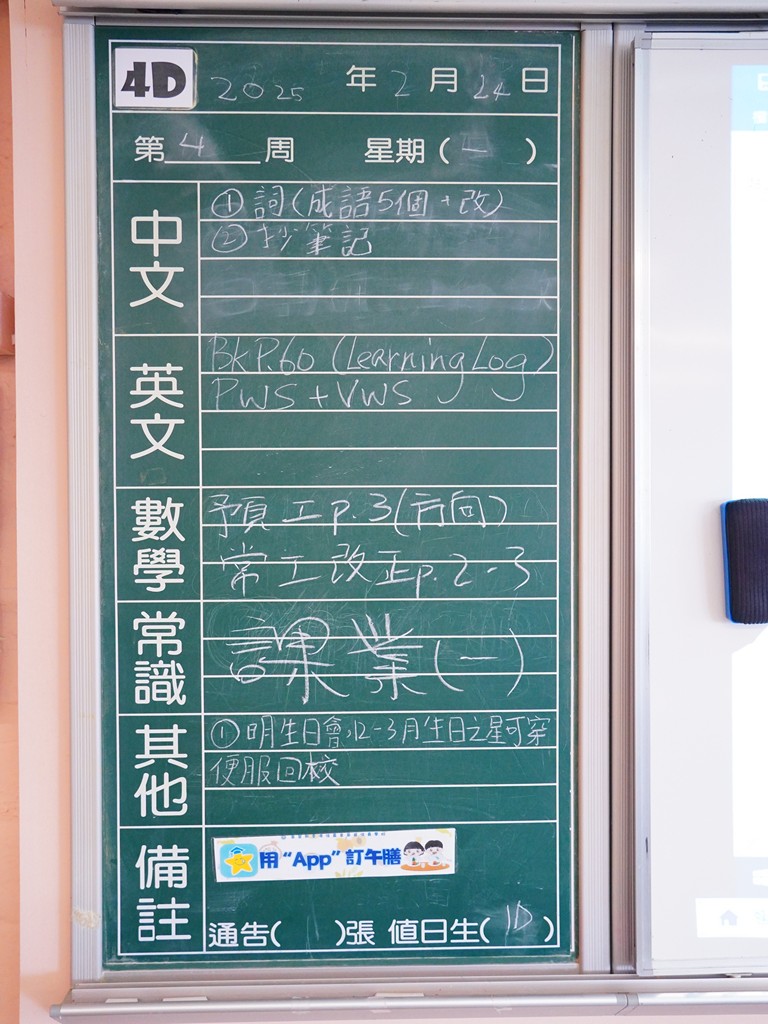 4D 2025 年 2 月 24 日
第 4 周 星期 ( 一 )
中文
① 詞(成語5個+改)
② 抄筆記
英文
Bk P.60 (Learning Log)
PWS + VWS
數學
預工p.3(方向)
常工改正p.2-3
常識
課業(一)
其他
① 明生日會,2-3月生日之星可穿
便服回校
備註
用“App”訂午膳
通告( )張 值日生( 1D )